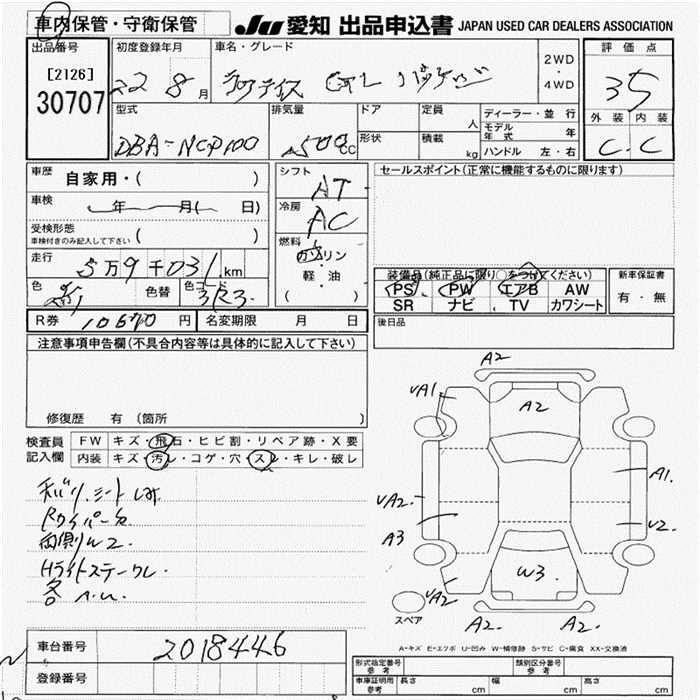 車内保管・守衛保管 JU 愛知 出品申込書 JAPAN USED CAR DEALERS ASSOCIATION
出品番号 初度登録年月 車名・グレード 2WD・4WD 評価点
[2126]
30707 22 8月 35
外装 内装
C C
型式 排気量 ドア 定員 人 ディーラー・並行
DBA-NCP100 1500cc 形状 積載 kg モデル年式 年
ハンドル 左・右
車歴 自家用・( ) シフト AT セールスポイント(正常に機能するものに限ります)
車検 年 月( 日) 冷房 AC
受検形態 車検付きのみ記入して下さい ( )
燃料 ガソリン・軽・油 ( )
走行 5万9千031km
色 色替 色コード 3R3
装備品(純正品に限り○をつけてください) 新車保証書
PS PW エアB AW 有・無
SR ナビ TV カワシート
R券 10670円 名変期限 月 日 後日品
注意事項申告欄(不具合内容等は具体的に記入して下さい)
修復歴 有 (箇所 )
検査員記入欄 FW キズ・飛石・ヒビ割・リペア跡・X要
内装 キズ・汚レ・コゲ・穴・スレ・キレ・破レ
両側W2
A2
UA1 A2
A1
UA2
A3 U2
W3
UA2 A2 A2
スペア
A-キズ E-エクボ U-凹み W-補修跡 S-サビ C-腐食 XX-交換済
車台番号 2018446
登録番号
形式指定番号 参考 類別区分番号 参考
車庫証明用 参考 長さ cm 幅 cm 高さ cm